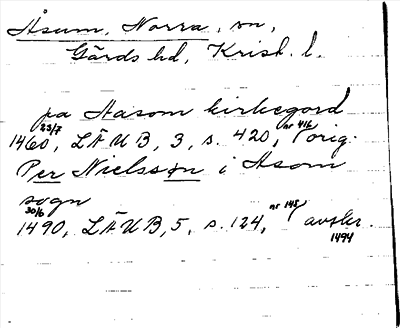 Åsum, Norra, sn,
Gärds hd, Krist. l.
pa Aasom kirkegord
1460, 23/7 LÄUB, 3, s. 420, nr 416, orig.
Per Nielsszøn i Asom
sogn
1490, 30/6 LÄUB, 5, s. 124, nr 148, avskr.
1494